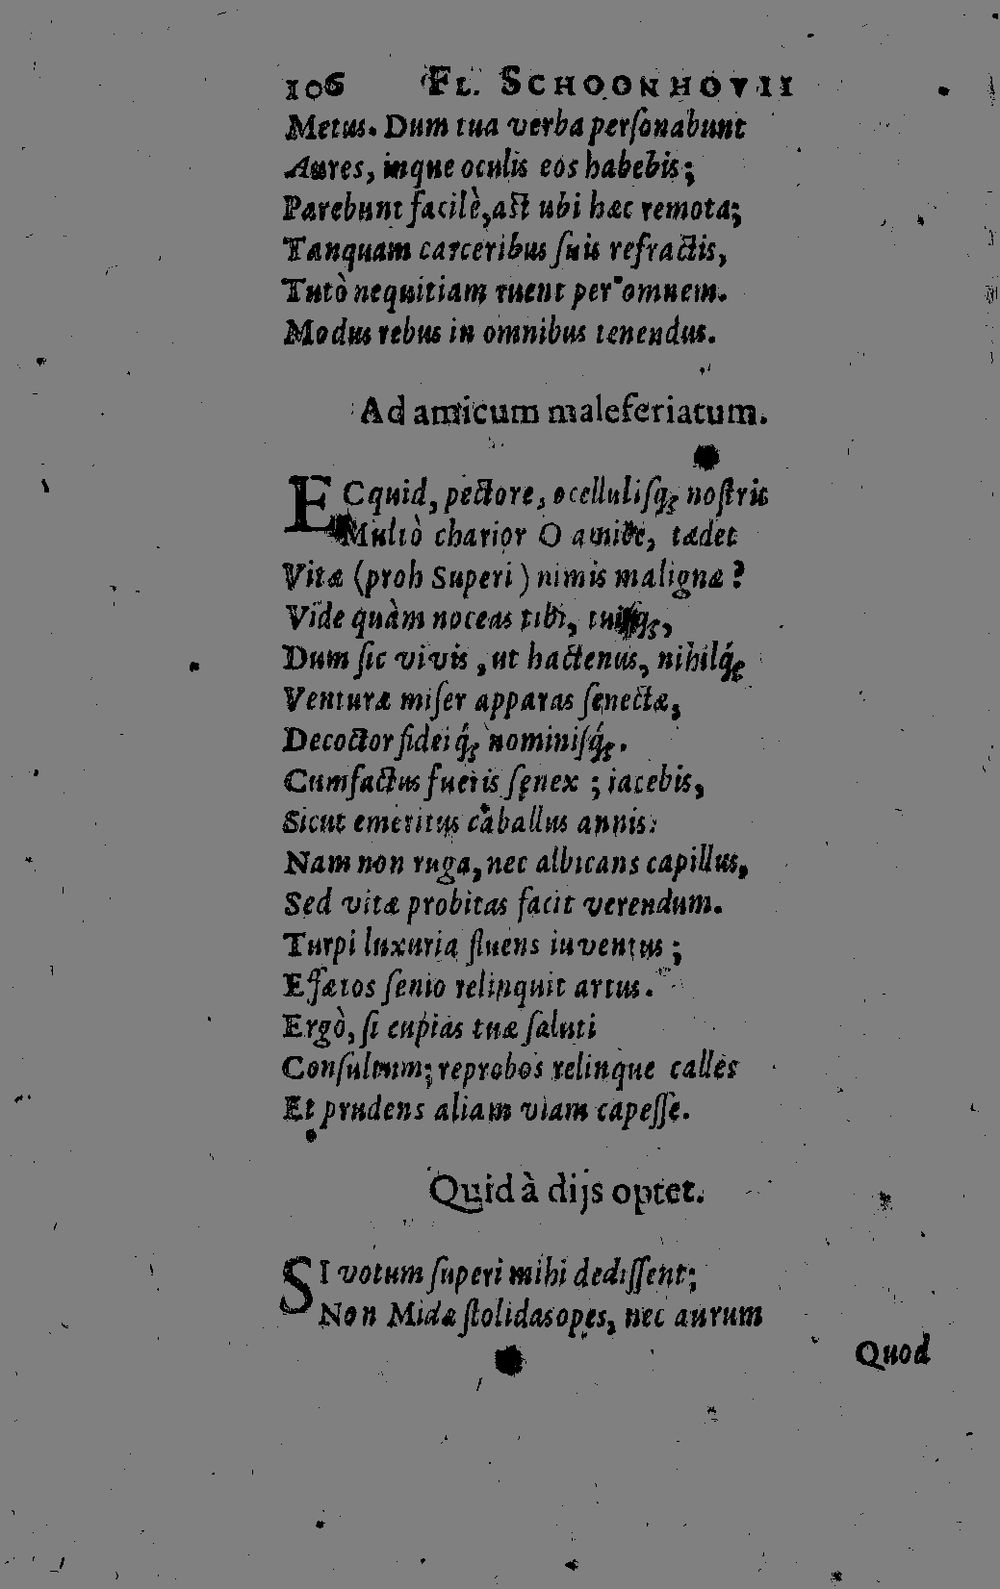 106 FL. SCHOONHOVII
Metus. Dum tua verba perſonabunt
Aures, inque oculis eos habebis;
Parebunt facilè, aſt ubi hæc remota;
Tanquam carceribus ſuis refractis,
Tutò nequitiam ruent per omnem.
Modus rebus in omnibus tenendus.
Ad amicum maleferiatum.
ECquid, pectore, ocelluliſq; noſtris
Multò charior O amice, tædet
Vitæ (proh Superi) nimis malignæ?
Vide quàm noceas tibi, tuiſq;,
Dum ſic vivis, ut hactenus, nihilq́;
Venturæ miſer apparas ſenectæ,
Decoctor fideiq́; nominiſq́;.
Cum factus fueris ſenex; iacebis,
Sicut emeritus caballus annis:
Nam non ruga, nec albicans capillus,
Sed vitæ probitas facit verendum.
Turpi luxuria fluens iuventus;
Effætos ſenio relinquit artus.
Ergò, ſi cupias tuæ ſaluti
Conſultum; reprobos relinque calles
Et prudens aliam viam capeſſe.
Quid à dijs optet.
SI votum ſuperi mihi dediſſent;
Non Midæ ſtolidas opes, nec aurum
Quod